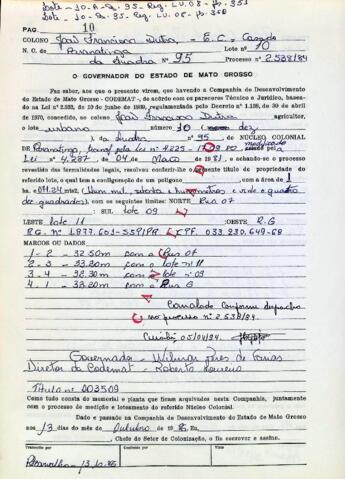 Lote - 10-A - Q. 95 - Reg. LU. 03 - fls. 351
Lote - 10 - Q. 95 - Reg. LU. 08 - fls. 350
PAG. 10
COLONO José Francisco Dutra - E.C. Casado
N. C. de Paranatinga Lote nº 10
Quadra Nº 95 Processo nº 2.538/84
O GOVERNADOR DO ESTADO DE MATO GROSSO
Faz saber, aos que o presente virem, que havendo a Companhia de Desenvolvimento
do Estado de Mato Grosso - CODEMAT -, de acôrdo com os pareceres Técnico e Jurídico, basea-
da na Lei nº 2.538, de 19 de junho de regulamentada pelo Decreto nº 1.138, de 30 de abril
de 1970, concedido ao colono José Francisco Dutra agricultor, o
lote urbano número 10 (dez
) da Quadra nº 95, do NÚCLEO COLONIAL
de Paranatinga, modificado pela
Lei nº 4.287, de 04 de Março de 1981, e achando-se o processo
revestido das formalidades legais, resolveu conferir-lhe o presente título de propriedade do
referido lote, o qual tem a configuração de um polígono com a área de 1
ha e 071.24 mts2,
dos quadrados) com os seguintes limites: NORTE Rua 07
: SUL lote 09
LESTE lote 11 :OESTE R.G
RG. nº L877.601-SSP/PR CPF. 033.230.649-68
MARCOS OU DADOS
1 - 2 - 32.50m com a Rua 07
2 - 3 - 33.20m com o lote nº 11
3 - 4 - 32.30m com o nº 09
4 - 1 - 33.20m com a Rua G
CANCELADO
Cancelado conforme despacho
no processo nº 2.538/84.
Cuiabá, 05/04/94.
Governador - Wilmar Peres de Farias
Diretor da Codemat - Roberto Loureiro
Título nº 003509
Como tudo consta do memorial e planta que ficam arquivados nesta Companhia, juntamente
com o processo de medição e loteamento do referido Núcleo Colonial.
Dado e passado na Companhia de Desenvolvimento do Estado de Mato Grosso
aos 13 dias do mês de Outubro de 1986. Eu,
, Chefe do Setor de Colonização, o fiz escrever e assino.
13.10.86